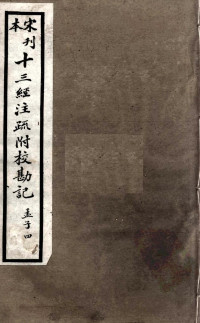 宋本
刊十三經注疏附校勘記
孟子四